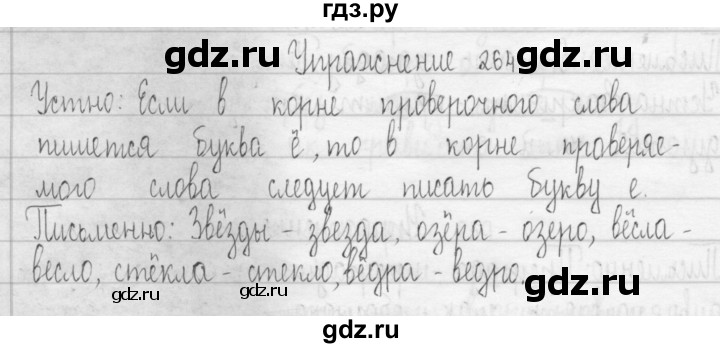 гдз.ру
gdz.ru gdz.ru
Упражнение 264
Устно: Если в корне проверочного слова
пишется буква ё, то в корне проверяе-
мого слова следует писать букву е.
Письменно: Звёзды - звезда, озёра - озеро, вёсла -
весло, стёкла - стекло, вёдра - ведро.
gdz.ru gdz.ru gdz.ru
gdz.ru